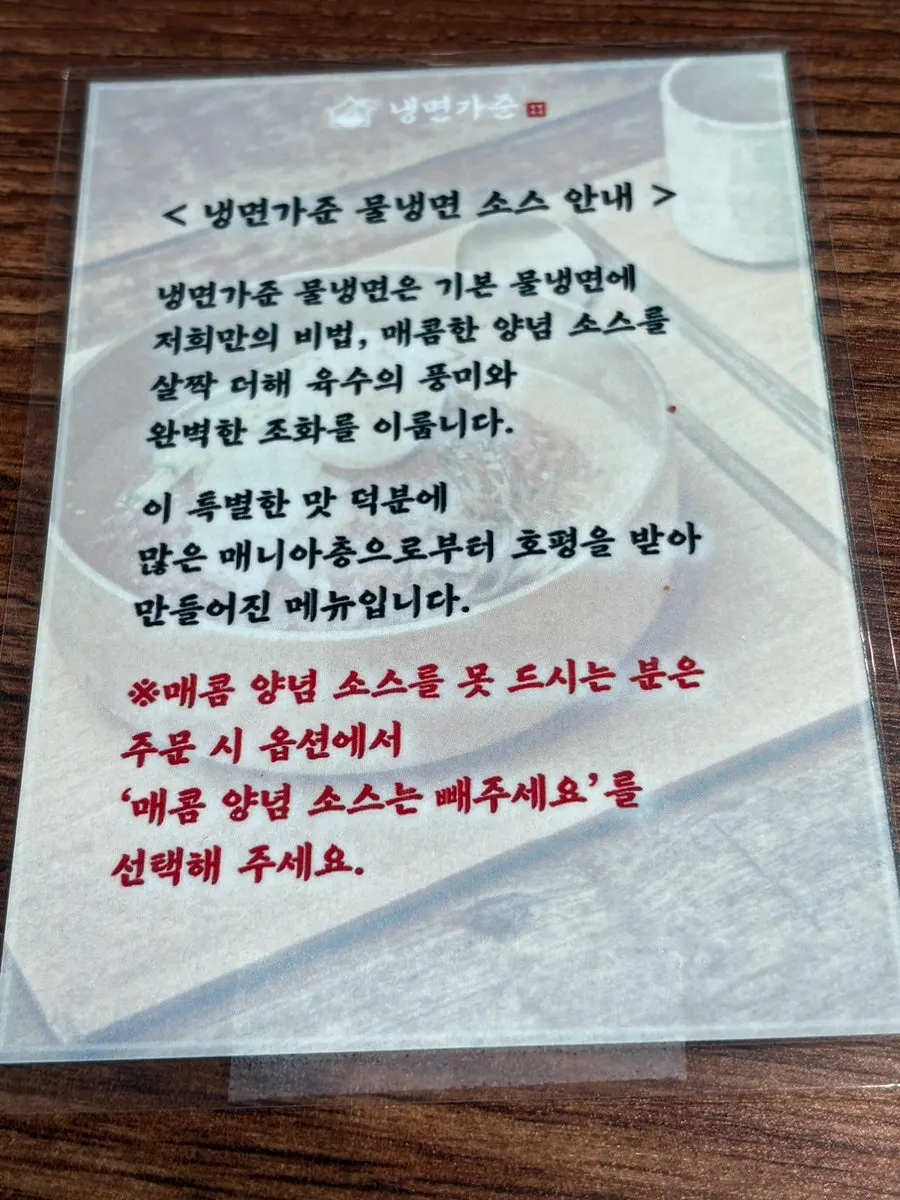 냉면가준
< 냉면가준 물냉면 소스 안내 >
냉면가준 물냉면은 기본 물냉면에
저희만의 비법, 매콤한 양념 소스를
살짝 더해 육수의 풍미와
완벽한 조화를 이룹니다.
이 특별한 맛 덕분에
많은 매니아층으로부터 호평을 받아
만들어진 메뉴입니다.
※매콤 양념 소스를 못 드시는 분은
주문 시 옵션에서
‘매콤 양념 소스는 빼주세요’를
선택해 주세요.